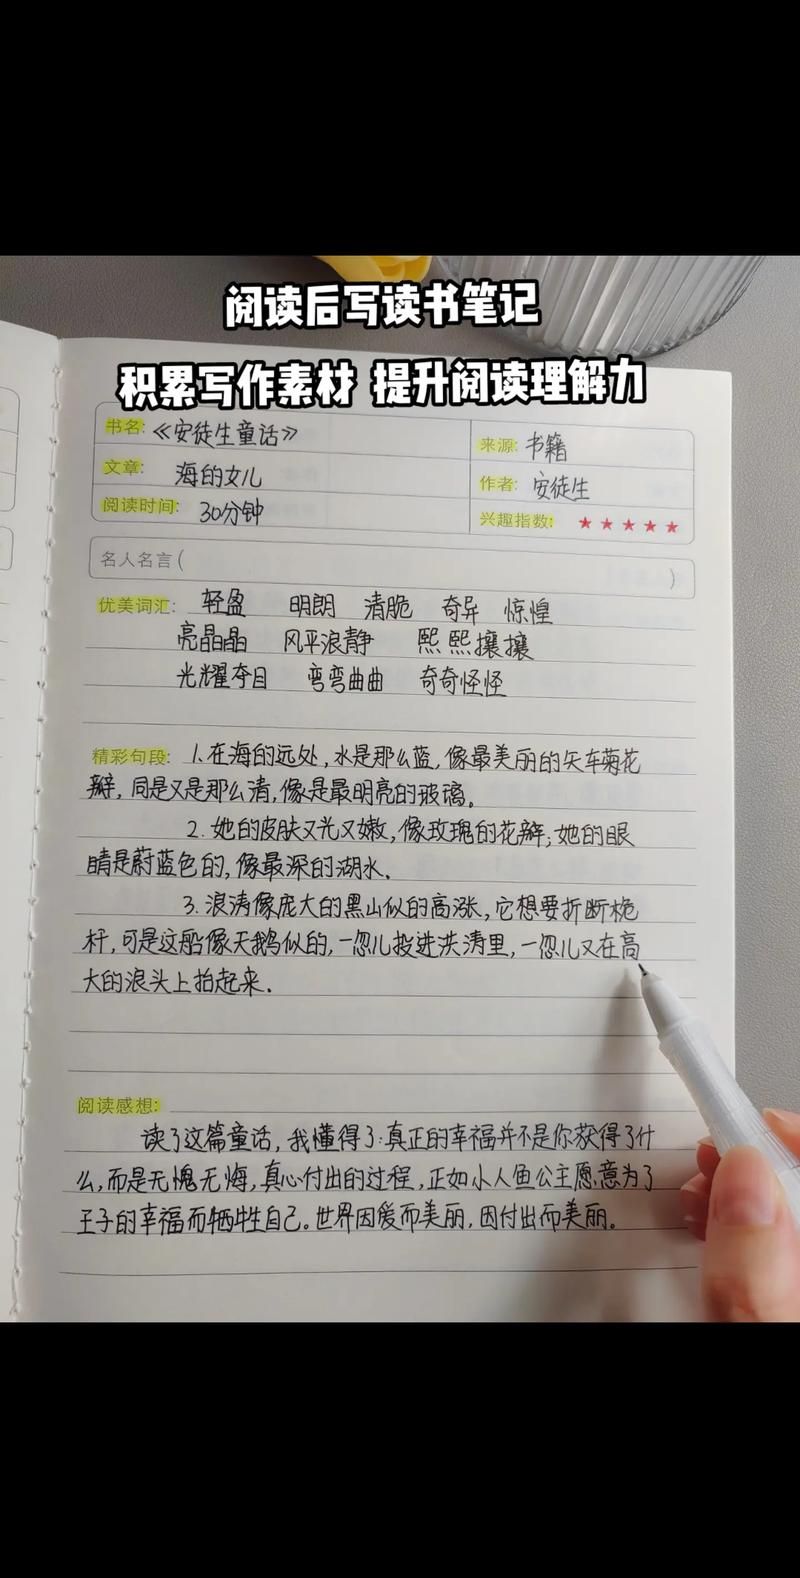 阅读后写读书笔记
积累写作素材 提升阅读理解力
书名: 《安徒生童话》
来源: 书籍
文章: 海的女儿
作者: 安徒生
阅读时间: 30分钟
兴趣指数: ★★★★★
名人名言( )
优美词汇: 轻盈 明朗 清脆 奇异 惊惶
亮晶晶 风平浪静 熙熙攘攘
光耀夺目 弯弯曲曲 奇奇怪怪
精彩句段: 1.在海的远处,水是那么蓝,像最美丽的矢车菊花
瓣,同是又是那么清,像是最明亮的玻璃。
2.她的皮肤又光又嫩,像玫瑰的花瓣;她的眼
睛是蔚蓝色的,像最深的湖水.
3.浪涛像庞大的黑山似的高涨,它想要折断桅
杆,可是这船像天鹅似的,一忽儿投进洪涛里,一忽儿又在高
大的浪头上抬起来.
阅读感想:
读了这篇童话,我懂得了:真正的幸福并不是你获得了什
么,而是无愧无悔,真心付出的过程,正如小人鱼公主愿意为了
王子的幸福而牺牲自己。世界因爱而美丽,因付出而美丽。